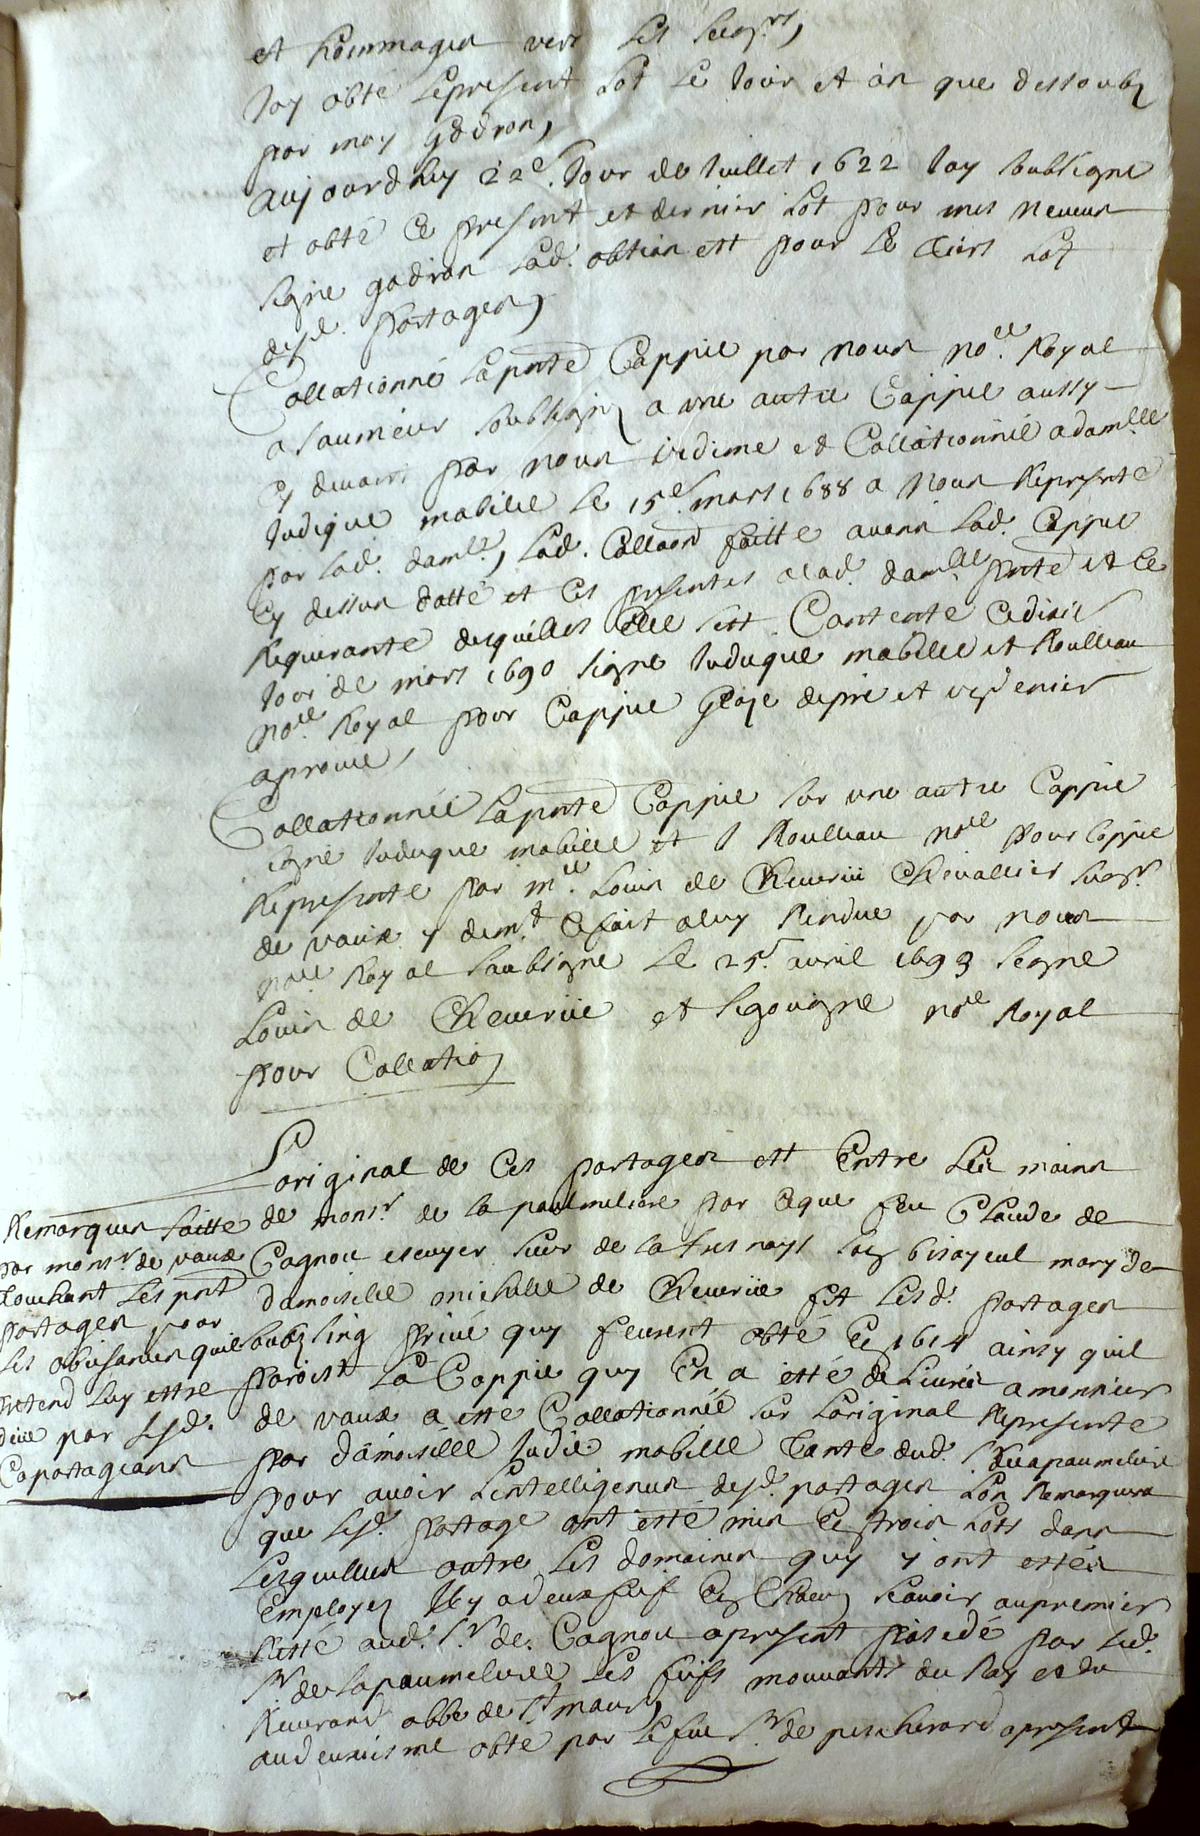 et hommages vers les seigrs,
Jay obté le present lot le Jour et an que dessoubz
par moy godron,
aujourdhuy 22e. Jour de Juillet 1622 Jay soubsigne
et obté ce present et dernier lot pour mes neveus
signe godron lad. obtion est pour le tiers lot
desd. partages,
Collationné la pnte Coppie par nous nore. Royal
a saumeur soubsignez a une autre Coppie aussy
cy devant par nous vidime et Collationnée a damlle
Judique mabille le 15e. mars 1688 a nous Represente
par lad. damlle, lad. Collaon faitte avons lad. Coppie
cy dessus datté et ces presentes a lad. damlle pnte et ce
Requerante desquelles Elle sest Contente ce dixie
Jour de mars 1690 signe Juduque mabille et Roulleau
nore Royal pour Coppie gloze depré et
aprouve,
Collationnée la pnte Coppie sur une autre Coppie
signe Juduque mabille et J Roulleau nore pour Coppie
Represente par mre. Louis de Cheverüe Chevallier seigr.
de vaux y demt. ce fait a luy Rendue par nous
nore Royal soubsigne le 25e. avril 1693 signe
Louis de Cheverüe et segouigne nore Royal
pour Collation
Loriginal de ces partages est Entre les mains
de monsr. de la paulmeliere par ce que feu Claude de
Cagnou escuyer sieur de la fresnays son bisayeul mary de
damoiselle michelle de Cheverüe fit lesd. partages
soubz sing privé quy feurent obté En 1614 ainsy quil
paroist La Coppie quy En a esté de Livrée a monsieur
de vaux a esté Collationnée sur Loriginal Represente
par damoiselle Judie mabille tante dud. sr. de la paumeliere
pour avoir Lintelligence desd. partages Lon Remarquera
que lesd. partage ont esté mis En trois lots dans
Lesquelles outre les domaines quy y ont estés
Employez Il y a deux fief En scavoir au premier
sr. de Cagnou a present possedé par led.
sr de la paumeliere les fiefs mouvants du Roy et du
Reverand abbe de St maur,
au deuxiesme obté par le feu sr. de pescherard a present
Remarques faitte
par monsr. de vaux
touchant les pnt
partages pour
les obeissances quil
pretend luy estre
deue par lesd.
Copartageans